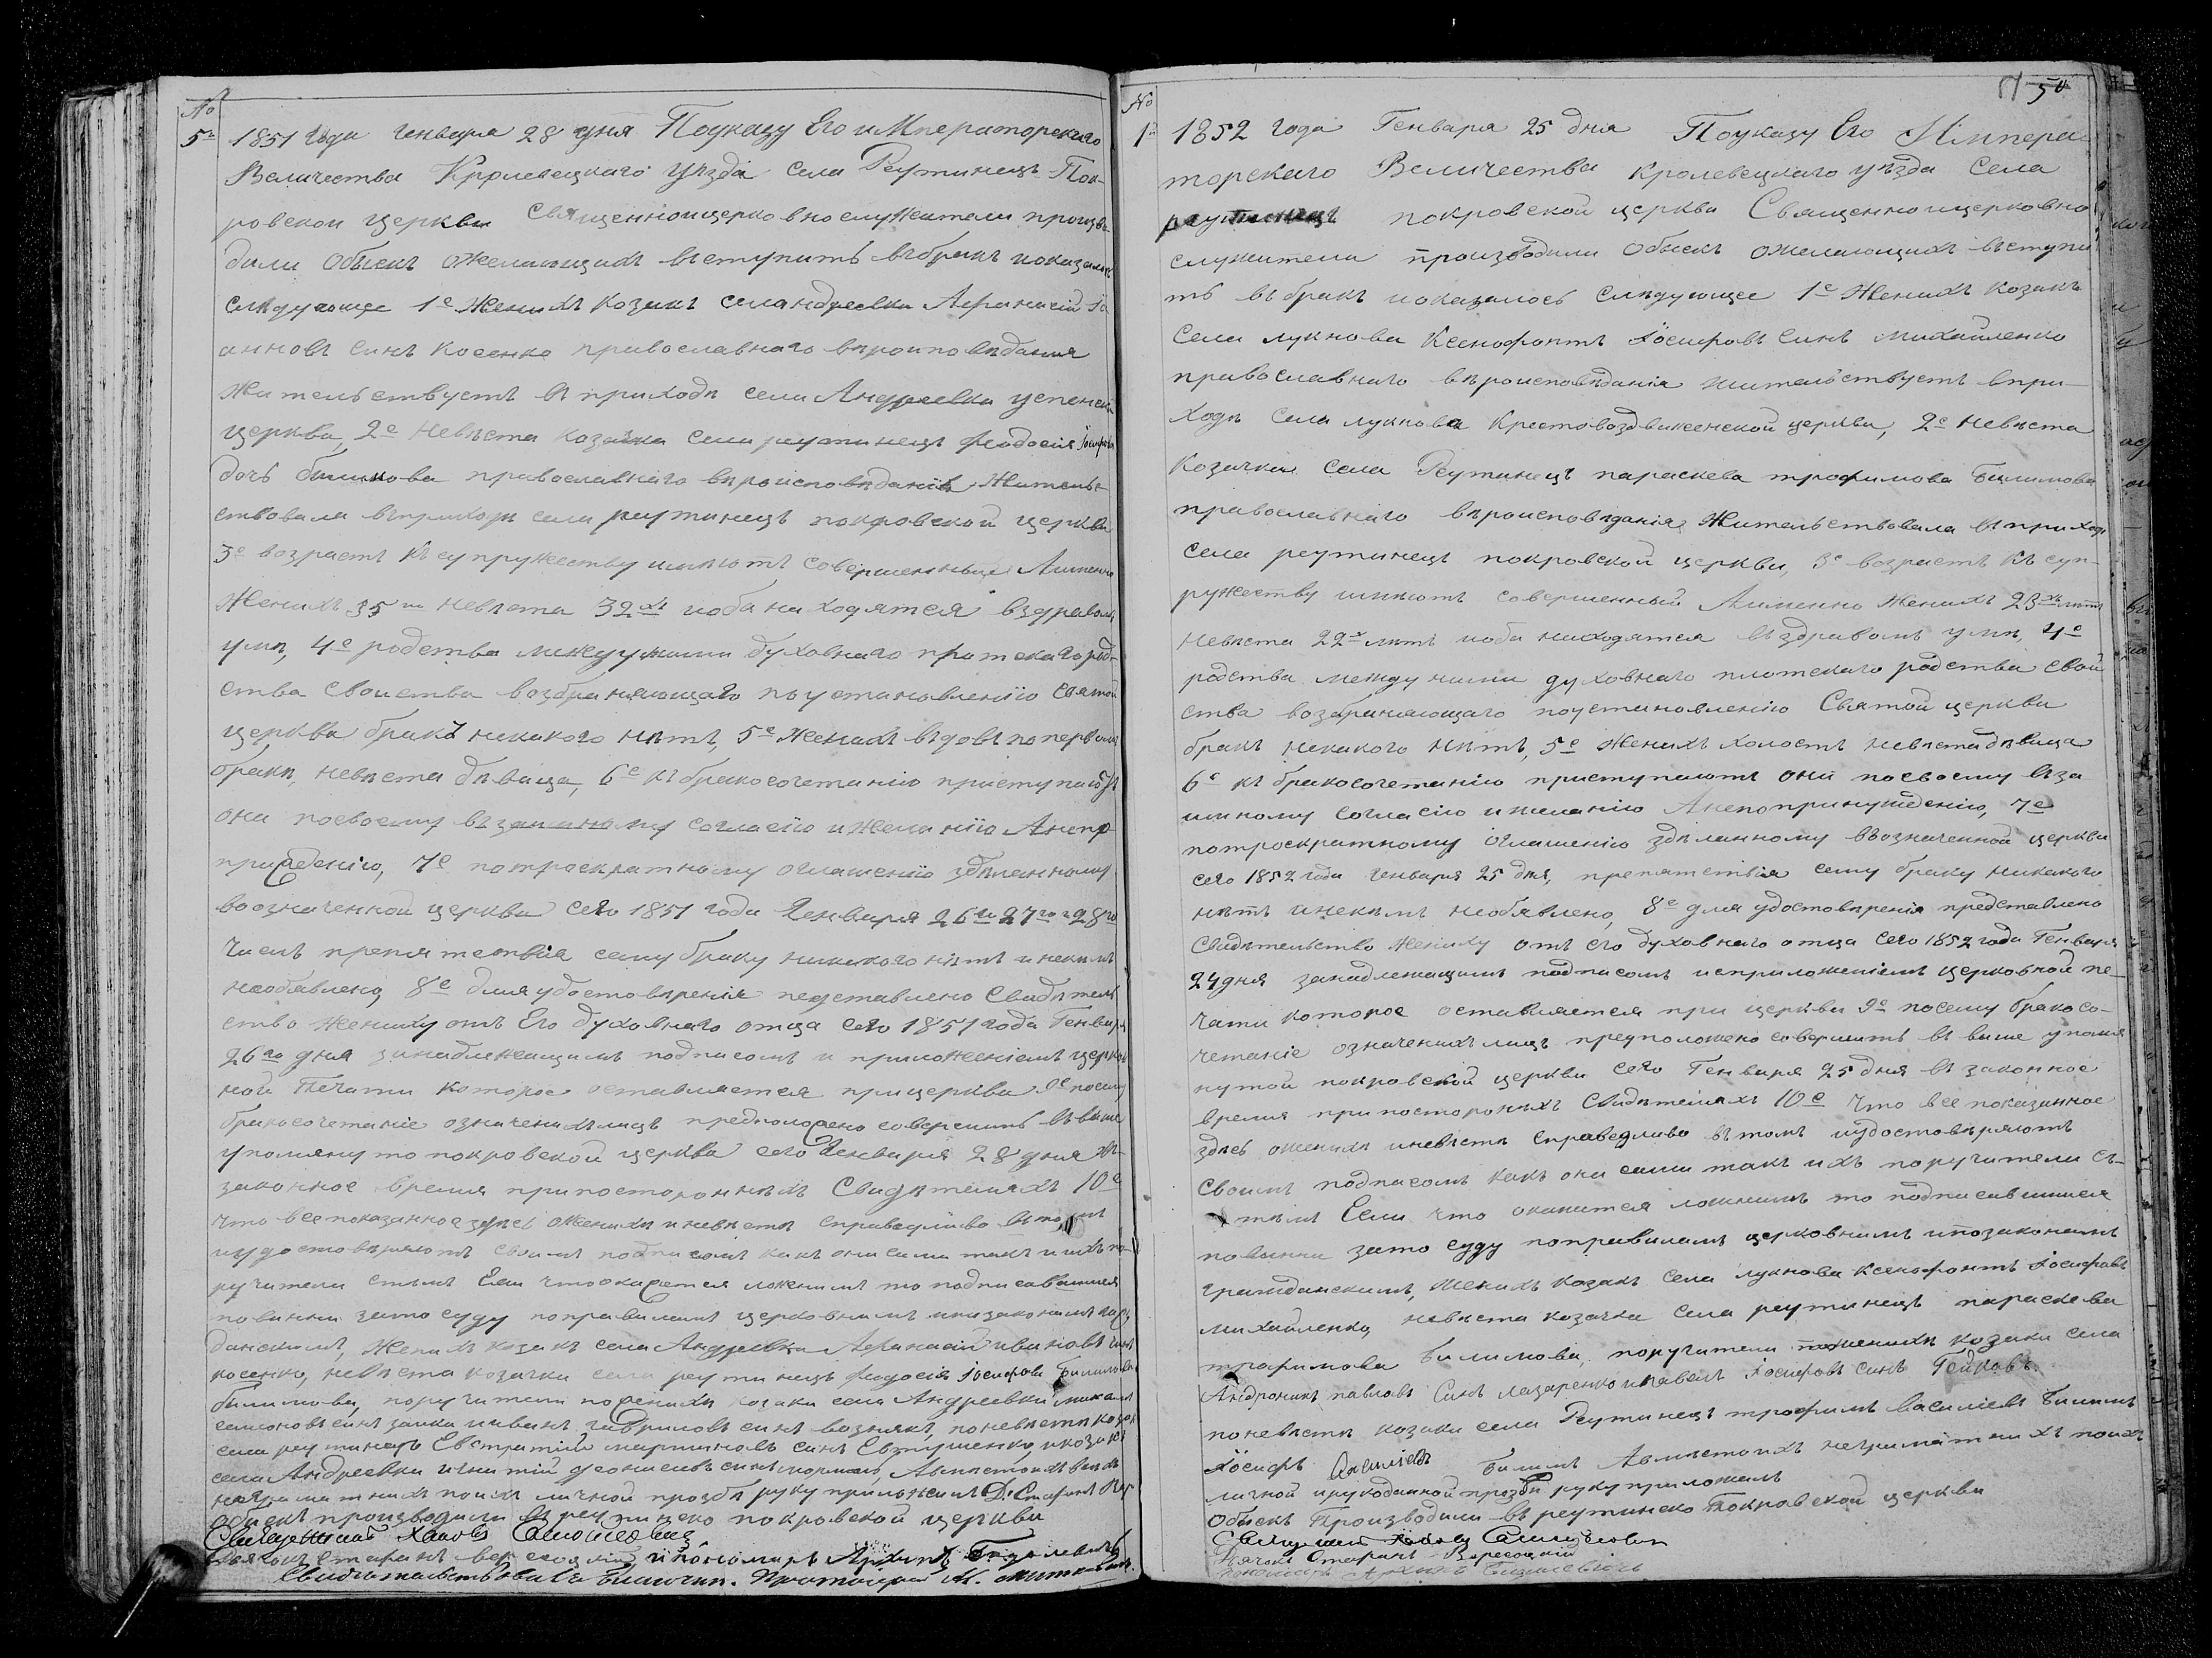 №
5й 1851 года Генваря 28 дня Поуказу Его иМператорскаго
Величества Кролевецкаго Уѣзда села Реутинецъ Пок-
ровской церкви Священноицерковнослужители произво
дили Обыскъ ожелающихъ вступить вбракъ иоказалось
слѣдующее 1е Женихъ Козакъ села ндреевки Афанасій Іо
анновъ синъ Косенко православнаго вѣроисповѣдания
Жительствуетъ въ приходѣ села Андреевки успенской
церкви, 2е Невѣста Козачка села реутинецъ феодосія Іосифова
дочь билимова православнаго вѣроисповѣданія Житель-
ствовала въприходѣ села реутинецъ покровской церкви
3е возрастъ къ супружеству имѣютъ совершенный Аименно
Женихъ 35 невѣста 32хъ иоба находятся въздравомъ
умѣ, 4е родства между ними духовнаго плотскаго род-
ства своиства возбраняющаго по установленію святой
церкви бракъ никакого нѣтъ, 5е Женихъ вдовъ поперьвомъ
бракѣ, невѣста дѣвица, 6е къ бракосочетанію приступаютъ
они посвоему взаимному согласію иЖеланію Анепо
принужденію, 7е потроекратному оглашенію зделанному
воозначенной церкви сего 1851 года Генваря 26го 27го и 28го
Числъ препятствія сему браку никакого нѣтъ инекимъ
необявлено, 8е Для удостовѣренія педставлено Свидѣтель
ство Жениху отъ Его духовнаго отца сего 1851 года Генваря
26го дня занадлежащимъ подписомъ и приложеніемъ церков
ной Печати которое оставляется прицеркви 9е посему
бракосочетаніе означенихълицъ предположено совершить въ выше
упомянуто покровской церкви сего Генваря 28 дня въ
законное время припостороннихъ Свидѣтеляхъ 10е
что все показанное здѣсь оЖенихѣ иневѣстѣ справедливо въ томъ
иудостовѣряютъ своимъ подписомъ какъ они сами такъ иихъ по-
ручители стѣмъ Если чтоокажется ложнимъ то подписавшиеся
повинни зато суду поправиламъ церковнимъ ипозаконамъ граж
данскимъ, Женихъ козакъ села Андреевки Афанасій ивановъ синъ
косенко, невѣста козачка села реутинецъ федосія Іосифова Билимова
билимова, поручители поженихѣ козаки села Андреевки михаилъ
семоновъ синъ заика ииванъ гавриловъ синъ вознякъ, поневѣстѣ козакъ
села реутинецъ Евстратій мартиновъ синъ Евтушенко, икозакъ
села Андреевки игнатій деонисовъ синъ, Авмѣстоихъ всехъ
неграматнихъ поихъ личной прозбѣ руку приложилъ Д: Стефанъ
Обыскъ производили вреутинско покровской церкви
Священникъ Іаковъ Самойловичъ
Дьячокъ Стефанъ Вересоцкій ипономаръ Архипъ Базилевичъ
Свидѣтельствовалъ Благочин. Протоіерей

50
№
1й 1852 года Генваря 25 дня Поуказу Его Импера-
торскаго Величества Кролевецкаго уѣзда Села
реутинецъ покровской церкви Священноицерковно
служители производили Обыскъ ожелающихъ вступи
ть въбракъ иоказалось слѣдующее 1е Женихъ Козакъ
Села лукнова Ксенофонтъ Іосифовъ Синъ михайленко
православнаго вѣроисповѣданія жительствуетъ впри-
ходѣ села лукнова Крестовоздвиженской церкви, 2е невѣста
Козачка села Реутинецъ параскева трофимова Билимова
православнаго вѣроисповѣданія, Жительствовала въ приходѣ
села реутинецъ покровской церкви, 3е возрастъ къ суп-
ружеству имѣютъ совершенный Аименно Женихъ 23хъ лѣтъ
невѣста 22х лѣтъ иоба находятся въ здравомъ умѣ, 4е
родства между ними духовнаго плотскаго родства свой
ства возбраняющаго поустановленію Святой церкви
бракъ никакого нѣтъ, 5е Женихъ холостъ невѣста дѣвица
6е къ бракосочетанію приступаютъ они посвоему вза
имному согласію ижеланію Анепопринуждению, 7е
потроекратному оглашенію здѣланному ввозначенной церкви
сего 1852 года Генваря 25 дня, препятствія сему браку никакого
нѣтъ инекимъ необявлено, 8е для удостовѣренія представлено
Свидѣтельство Жениху отъ его духовнаго отца сего 1852 года Генваря
24 дня занадлежащимъ подписомъ исприложеніемъ церковной пе-
чати которое оставляется при церкви 9е посему бракосо-
четаніе означенихъ лицъ предположено совершить въ выше упомя
нутой покровской церкви сего Генваря 25 дня въ законное
время припосторонихъ Свидѣтеляхъ 10е что все показанное
здѣсь оженихѣ иневѣстѣ справедливо вътомъ иудостовѣряютъ
Своимъ подписомъ какъ они сами такъ и ихъ поручители съ-
тѣмъ Если что окажется ложнимъ то подписавшиеся
повинни зато суду поправиламъ церковнимъ ипозаконамъ
гражданскимъ, Женихъ козакъ села лукнова Ксенофонтъ Іосифовъ
михайленко, невѣста козачка села реутинецъ параскева
трофимова Билимова, поручители поженихѣ козаки села
Андроникъ павловъ Синъ лазаренко ипавелъ Іосифовъ синъ Гейковъ.
поневѣстѣ козаки села Реутинецъ трофимъ васильевъ Билимъ
Іосифъ Билимъ Авмѣстоихъ неграматнихъ поихъ
личной ирукоданной прозбѣ руку приложилъ
Обыскъ Производили въ реутинско Покровской церкви
Священникъ Іаковъ Самойлович
Дьячок Стефанъ Вересоцкий
пономаръ Архипъ Базилевичъ